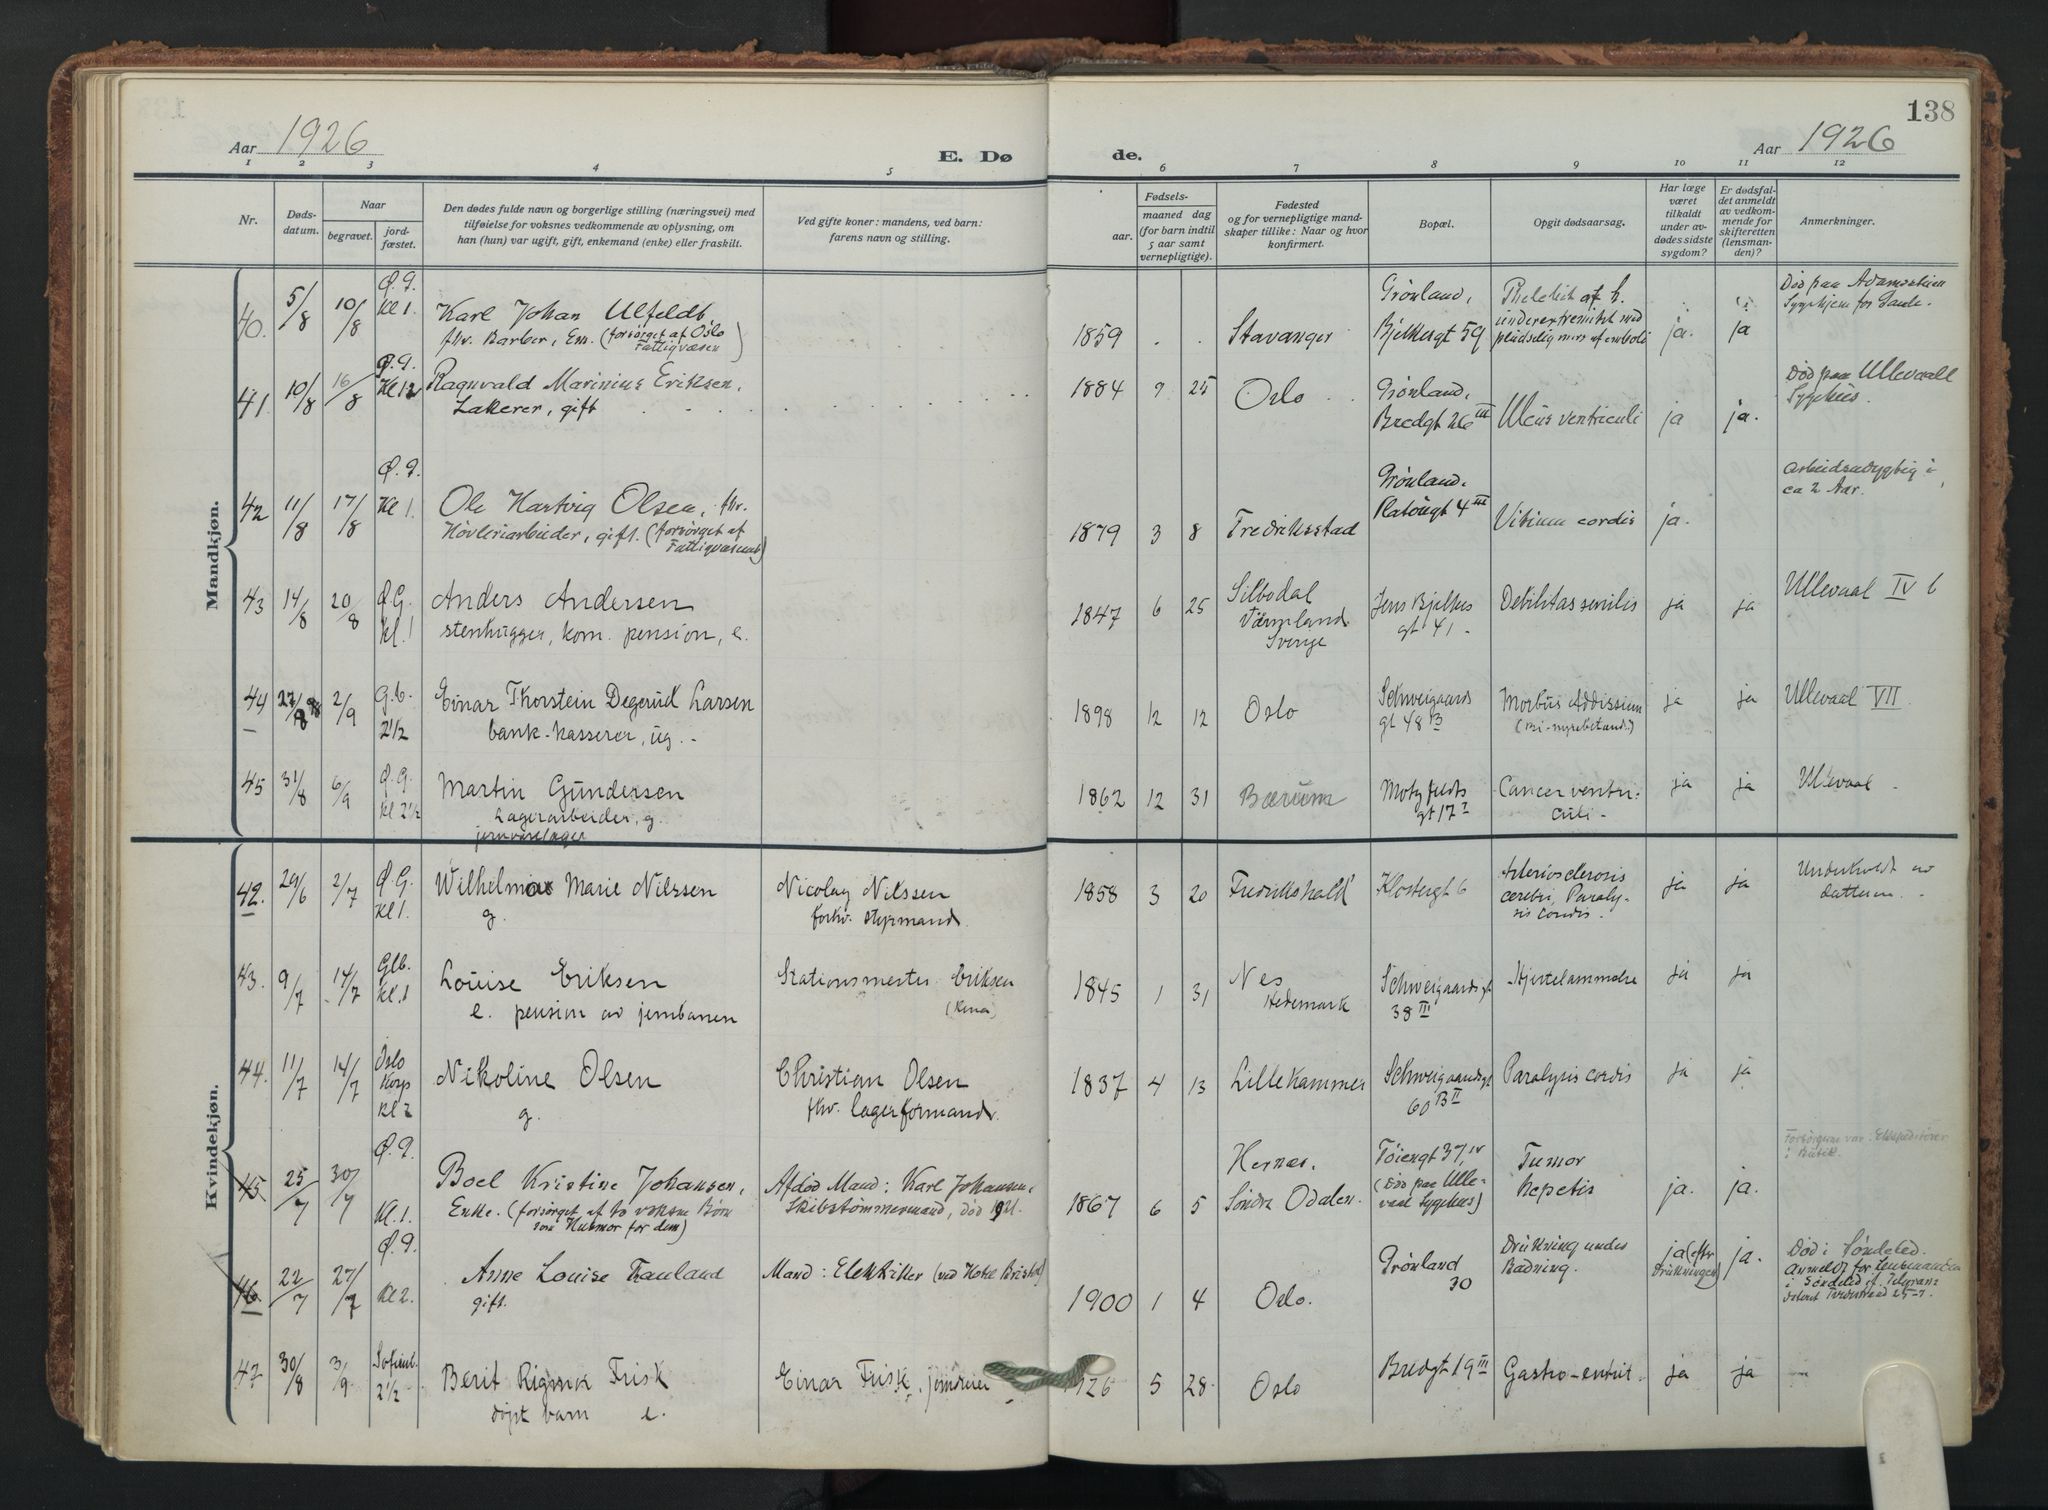 138
Aar 1926
E. Dø
de.
Aar 1926
1 2 3 4 5 6 7 8 9 10 11 12
Nr.
Døds-
datum.
Naar
begravet.
jord-
fæstet.
Den dødes fulde navn og borgerlige stilling (næringsvei) med
tilføielse for voksnes vedkommende av oplysning, om
han (hun) var ugift, gift, enkemand (enke) eller fraskilt.
Ved gifte koner: mandens, ved barn:
farens navn og stilling.
Fødsels-
aar.
maaned dag
(for barn indtil
5 aar samt
vernepligtige).
Fødested
og for vernepligtige mand-
skaper tillike: Naar og hvor
konfirmert.
Bopæl.
Opgit dødsaarsag.
Har læge
været
tilkaldt
under av-
dødes sidste
sygdom?
Er dødsfal-
det anmeldt
av vedkom-
mende for
skifteretten
(lensman-
den)?
Anmerkninger.
Mandkjøn.
40. 5/8 10/8 Ø. G. Kl 1.
Karl Johan Ulfeldt,
fhv. Barber, Em. (forsørget af Oslo
Fattigvæsen)
1859 . . Stavanger
Grønland,
Bjelkesgt 59
ja. ja
Død paa
Sygehjem for
41. 10/8 16/8 Ø. G. Kl 12
Ragnvald Marinius Eriksen,
Lakerer, gift
1884 9 25 Oslo
Grønland,
Bredgt 26 III
Ulcus ventriculi
ja ja.
Død paa Ullevaall
Sygehus.
42 11/8 17/8 Ø. G. Kl 1.
Ole Hartvig Olsen, fhv.
Høvleriarbeider, gift. (forsørget af
Fattigvæsenet)
1879 3 8 Fredriksstad
Grønland.
Platougt 4 III
Vitium cordis
ja.
arbeidsudygtig i
ca 2 Aar.
43 14/8 20/8 Ø. G. Kl. 1
Anders Andersen
stenhugger, kom. pension, e.
1847 6 25 Silbodal
Värmland
Sverige
Jens Bjelkes
gt 41.
Debilitas senilis
ja ja
Ullevaal IV b
44 27/8 2/9 G.b. 2 1/2
Einar Thorstein Degerud Larsen
bank-kasserer, ug.
1898 12 12 Oslo
Schweigaards
gt 48 B
Morbus Addissium
ja ja
Ullevaal VII.
45 31/8 6/9 Ø. G. Kl 2 1/2
Martin Gundersen
Lagerarbeider, g.
jernvarelager
1862 12 31 Bærum
Motzfeldts
gt 17
Cancer ventri-
culi
ja ja
Ullevaal
Kvindekjøn.
42. 29/6 2/7 Ø. G. Kl 1.
Wilhelmine Marie Nilssen
g.
Nicolay Nilssen
forhv. styrmand.
1858 3 20 Fredrikshald
Klostergt 6
Arteriosclerosis
cerebri, Paraly-
sis cordis.
ja ja
Underholdt av
datteren
43. 9/7 14/7 Glb. Kl. 1
Louise Eriksen
e. pension av jernbanen
Stationsmester Eriksen
1845 1 31 Nes
Hedemark
Schweigaardsgt
38 III
Hjertelammelse
ja ja
44. 11/7 14/7 Oslo Korps Kl 2
Nikoline Olsen
g.
Christian Olsen
fhv. lagerformand.
1837 4 13 Lillehammer
Schweigaardsgt
60 B II
Paralysis cordis
ja ja
45 25/7 30/7 Ø. G. Kl. 1.
Boel Kristine Johansen,
Enke. (forsørget af to voksne Børn
som Husmor for dem)
Afdød Mand: Karl Johansen,
Skibstømmermand, død 1921.
1867 6 5 Hernæs,
Søndre Odalen.
Tøiengt 37 IV
(Død paa Ulle-
vaal Sygehus)
Tumor
hepetis
ja. ja.
Forsørgerne var: Ekspeditører
i Butik.
46. 22/7 27/7 Ø. G. Kl 2.
Anne Louise Fauland
gift.
Mand: Elektriker (ved Hotel Bristol)
1900 1 4 Oslo.
Grønland
30
Drukning under
Badning.
ja (efter
Drukningen) ja.
Død i Søndeled.
Anmeldt for Lensmanden
i Søndeled if. Telegram
dateret Tvedestrand 25-7.
47 30/8 3/9 Sofienb. 2 1/2
Berit Rigmor Frisk
døpt barn e.
Einar Frisk, jerndreier
1926 5 28 Oslo
Bredgt 19 III
Gastro-enterit.
ja ja